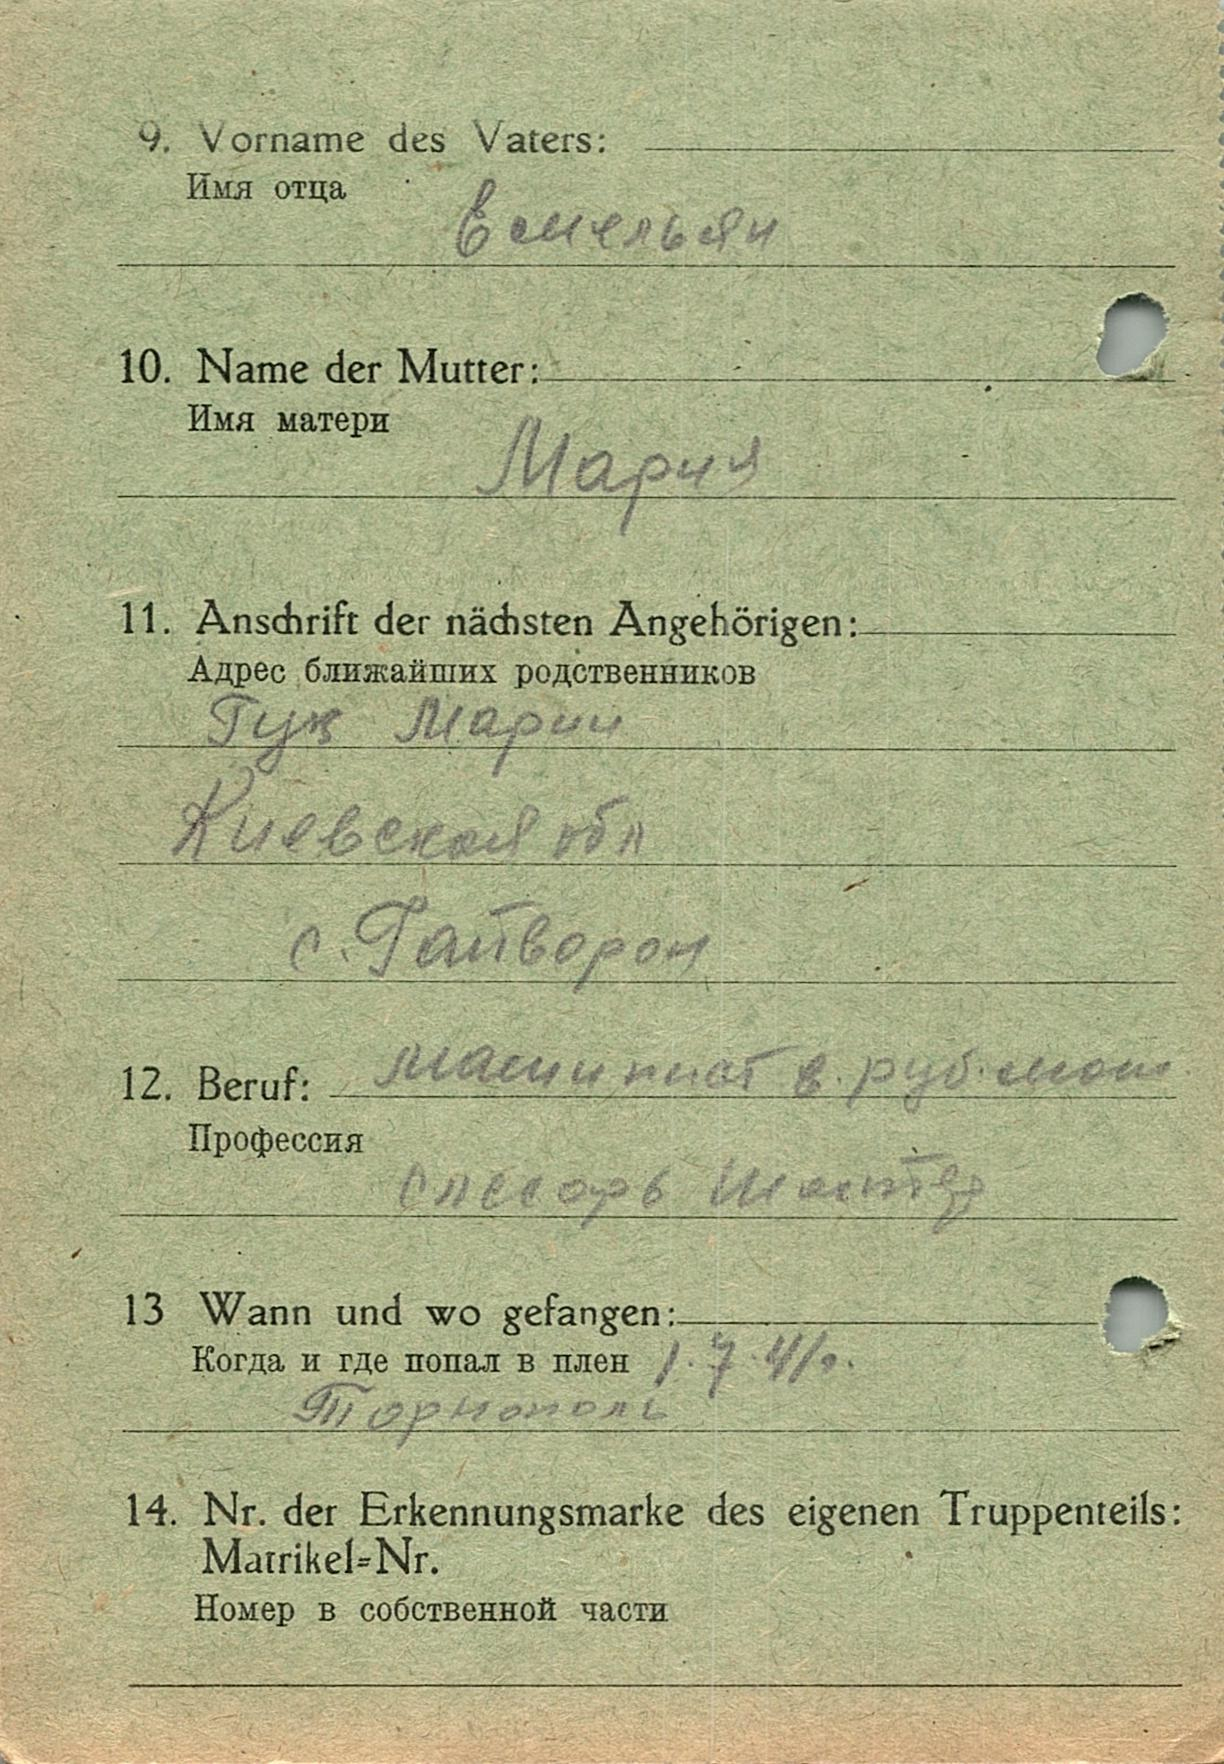 9. Vorname des Vaters:
Имя отца
Емельян
10. Name der Mutter:
Имя матери
Мария
11. Anschrift der nächsten Angehörigen:
Адрес ближайших родственников
Гуж Марии
Киевская обл
с. Гайворон
12. Beruf: машинист в. руб.
Профессия
слесарь
13 Wann und wo gefangen:
Когда и где попал в плен 1.7.41г.
Торнополь
14. Nr. der Erkennungsmarke des eigenen Truppenteils:
Matrikel=Nr.
Номер в собственной части